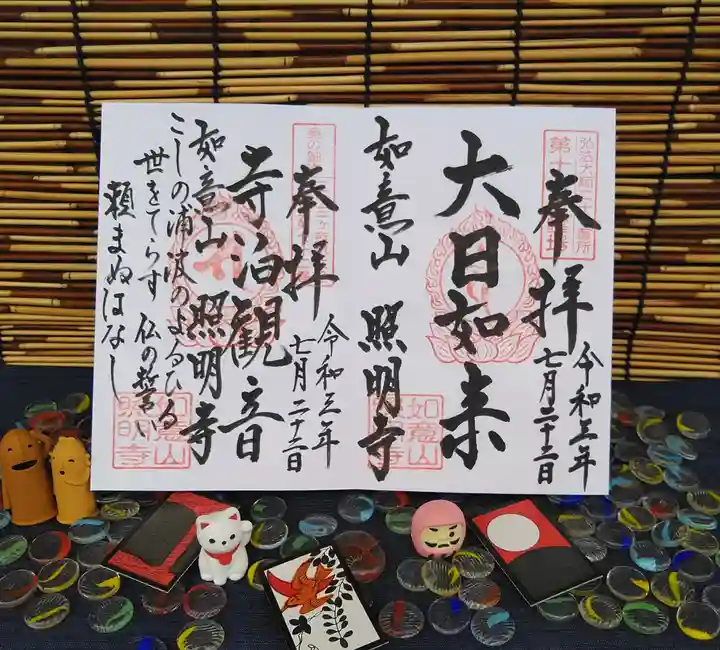 奉拝
令和三年
七月二十二日
大日如来
如意山 照明寺
如意山
照明寺
奉拝
令和三年
七月二十二日
寺泊観音
如意山 照明寺
こしの浦波のよるひる
世をてらす仏の誓い
頼まぬはなし
如意山
照明寺